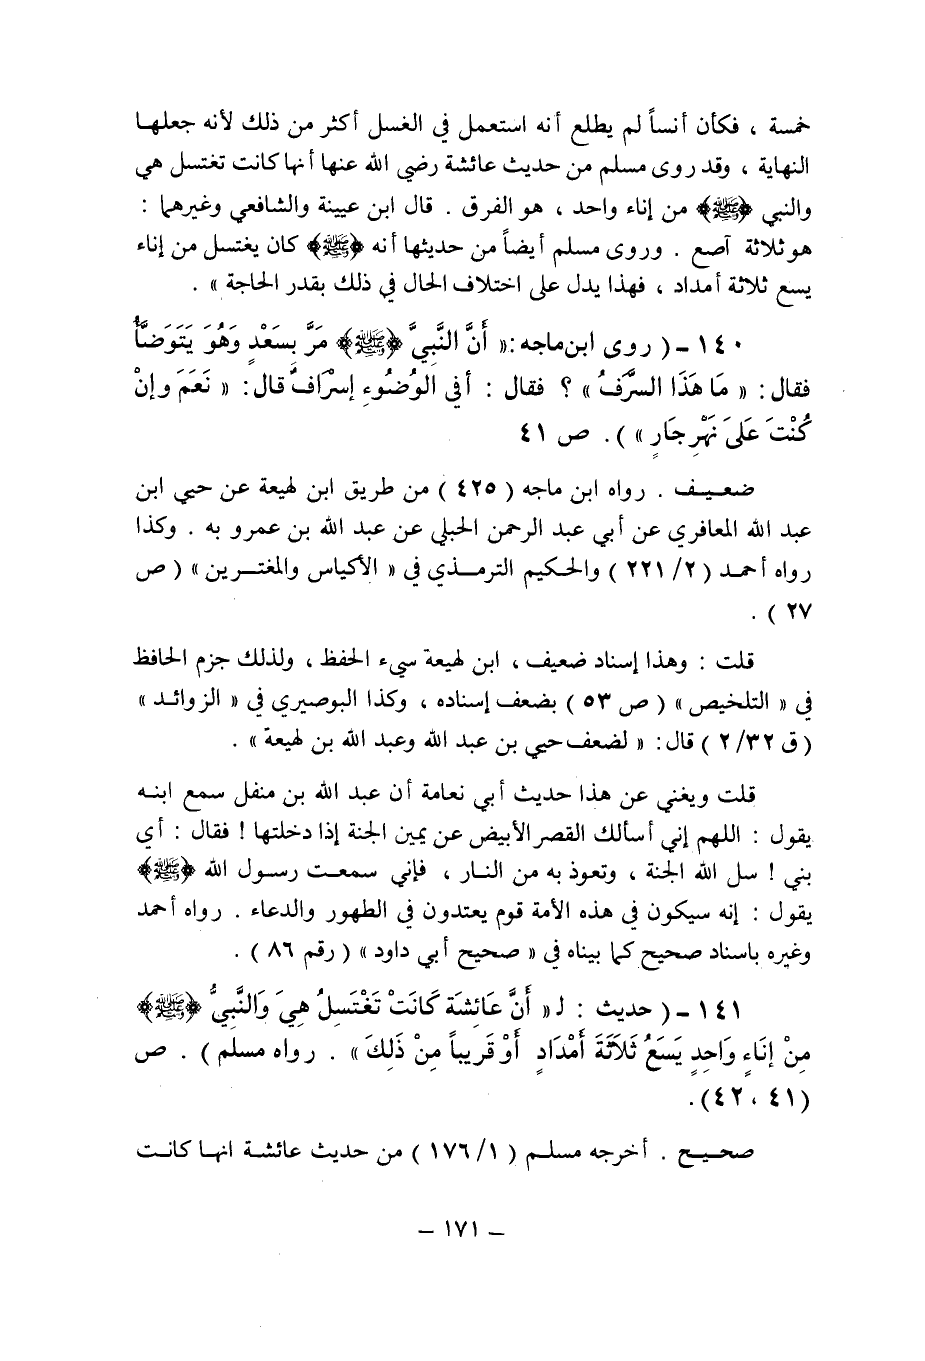 خمسة ، فكأن أنساً لم يطلع أنه استعمل في الغسل أكثر من ذلك لأنه جعلها
النهاية ، وقد روى مسلم من حديث عائشة رضي الله عنها أنها كانت تغتسل هي
والنبي ﴿ﷺ﴾ من إناء واحد ، هو الفرق . قال ابن عيينة والشافعي وغيرهما :
هو ثلاثة آصع . وروى مسلم أيضاً من حديثها أنه ﴿ﷺ﴾ كان يغتسل من إناء
يسع ثلاثة أمداد ، فهذا يدل على اختلاف الحال في ذلك بقدر الحاجة » .
١٤٠ - ( روى ابن ماجه : « أَنَّ النَّبِيَّ ﴿ﷺ﴾ مَرَّ بِسَعْدٍ وَهُوَ يَتَوَضَّأُ
فقال : « مَا هَذَا السَّرَفُ » ؟ فقال : أفي الوُضُوءِ إِسْرَافٌ قال : « نَعَمَ وإنْ
كُنْتَ عَلَىَ نَهْرٍ جَارٍ » ) . ص ٤١
ضعيف . رواه ابن ماجه ( ٤٢٥ ) من طريق ابن لهيعة عن حيي ابن
عبد الله المعافري عن أبي عبد الرحمن الحبلي عن عبد الله بن عمرو به . وكذا
رواه أحمد ( ٢/ ٢٢١ ) والحكيم الترمذي في « الأكياس والمغترين » ( ص
٢٧ ) .
قلت : وهذا إسناد ضعيف ، ابن لهيعة سيء الحفظ ، ولذلك جزم الحافظ
في « التلخيص » ( ص ٥٣ ) بضعف إسناده ، وكذا البوصيري في « الزوائد »
( ق ٣٢/ ٢ ) قال : « لضعف حيي بن عبد الله وعبد الله بن لهيعة » .
قلت ويغني عن هذا حديث أبي نعامة أن عبد الله بن منفل سمع ابنه
يقول : اللهم إني أسألك القصر الأبيض عن يمين الجنة إذا دخلتها ! فقال : أي
بني ! سل الله الجنة ، وتعوذ به من النار ، فإني سمعت رسول الله ﴿ﷺ﴾
يقول : إنه سيكون في هذه الأمة قوم يعتدون في الطهور والدعاء . رواه أحمد
وغيره باسناد صحيح كما بيناه في « صحيح أبي داود » ( رقم ٨٦ ) .
١٤١ - ( حديث : لـ « أَنَّ عَائِشَة كَانَتْ تَغْتَسِلُ هِيَ وَالنَّبِيُّ ﴿ﷺ﴾
مِنْ إنَاءٍ وَاحِدٍ يَسَعُ ثَلَاثَةَ أَمْدَادٍ أَوْ قَرِيباً مِنْ ذَلِكَ » . رواه مسلم ) . ص
(٤١ ، ٤٢) .
صحيح . أخرجه مسلم ( ١/ ١٧٦ ) من حديث عائشة انها كانت
– ١٧١ –